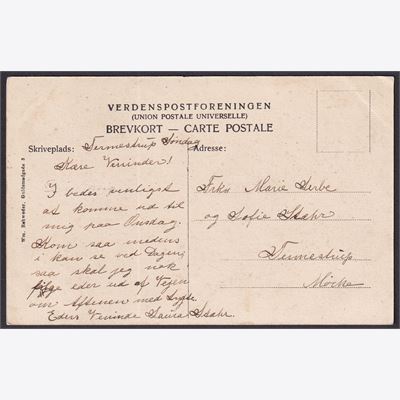 VERDENSPOSTFORENINGEN
(UNION POSTALE UNIVERSELLE)
BREVKORT — CARTE POSTALE
Skriveplads: Termestrup Søndag
Adresse:
Kære Veninder!
I bedes venligst
at komme ud til
mig paa Onsdag.
Kom saa medens
i kan se ved Dagen,
saa skal jeg nok
følge eder ud af Vejen
om Aftenen med Lygte.
Eders Veninde Laura Skahr.
Frkn Marie
og Sofie Skahr
Termestrup
Mörke